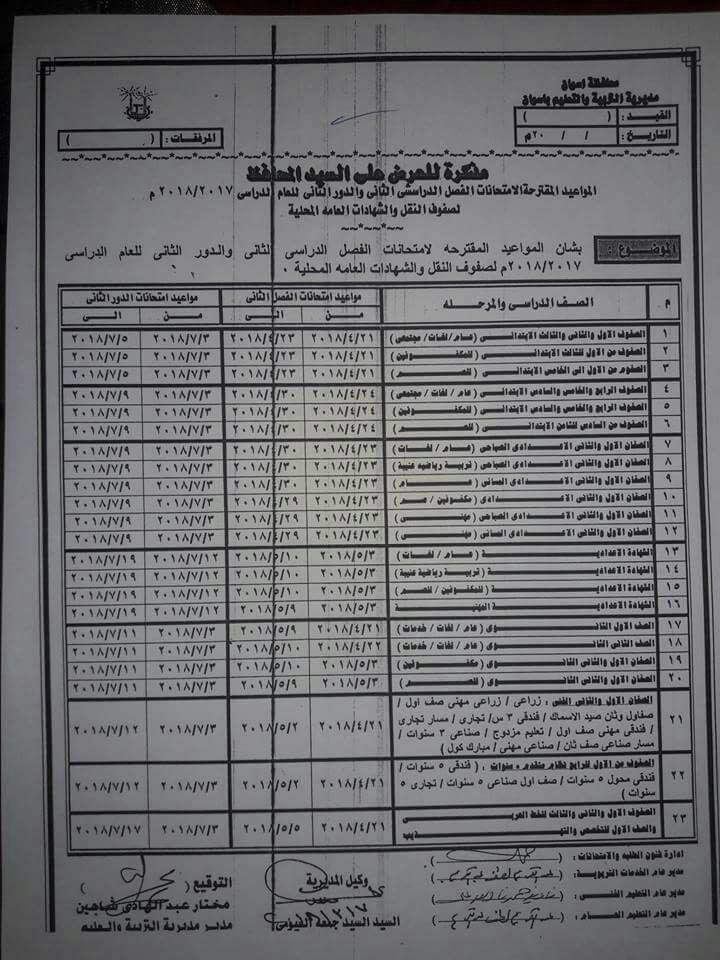 محافظة اسوان
مديرية التربية والتعليم باسوان
القيد : ( )
التاريخ : / / ٢٠م
المرفقات : ( )
مذكرة للعرض على السيد المحافظ
المواعيد المقترحة لامتحانات الفصل الدراسى الثانى والدور الثانى للعام الدراسى ٢٠١٨/٢٠١٧ م
لصفوف النقل والشهادات العامه المحلية
الموضوع : بشان المواعيد المقترحه لامتحانات الفصل الدراسى الثانى والدور الثانى للعام الدراسى
٢٠١٨/٢٠١٧م لصفوف النقل والشهادات العامه المحلية .
م الصف الدراسى والمرحله مواعيد امتحانات الفصل الثانى مواعيد امتحانات الدور الثانى
من الى من الى
١ الصفوف الاول والثانى والثالث الابتدائى (عام/لغات/مجتمعى) ٢٠١٨/٤/٢١ ٢٠١٨/٤/٢٣ ٢٠١٨/٧/٣ ٢٠١٨/٧/٥
٢ الصفوف من الاول للثالث الابتدائى (للمكفوفين) ٢٠١٨/٤/٢١ ٢٠١٨/٤/٢٣ ٢٠١٨/٧/٣ ٢٠١٨/٧/٥
٣ الصفوم من الاول الى الخامس الابتدائى (للصم) ٢٠١٨/٤/٢١ ٢٠١٨/٤/٢٣ ٢٠١٨/٧/٣ ٢٠١٨/٧/٥
٤ الصفوف الرابع والخامس والسادس الابتدائى (عام / لغات / مجتمعى) ٢٠١٨/٤/٢٤ ٢٠١٨/٤/٣٠ ٢٠١٨/٧/٣ ٢٠١٨/٧/٩
٥ الصفوف الرابع والخامس والسادس الابتدائى (للمكفوفين) ٢٠١٨/٤/٢٤ ٢٠١٨/٤/٣٠ ٢٠١٨/٧/٣ ٢٠١٨/٧/٩
٦ الصفوف من السادس للثامن الابتدائى (للصم) ٢٠١٨/٤/٢٤ ٢٠١٨/٤/٣٠ ٢٠١٨/٧/٣ ٢٠١٨/٧/٩
٧ الصفان الاول والثانى الاعدادى الصباحى (عام / لغات) ٢٠١٨/٤/٢٣ ٢٠١٨/٤/٣٠ ٢٠١٨/٧/٣ ٢٠١٨/٧/٩
٨ الصفان الاول والثانى الاعدادى الصباحى (تربية رياضية عنية) ٢٠١٨/٤/٢٣ ٢٠١٨/٤/٣٠ ٢٠١٨/٧/٣ ٢٠١٨/٧/٩
٩ الصفان الاول والثانى الاعدادى المسائى (عام) ٢٠١٨/٤/٢٣ ٢٠١٨/٤/٣٠ ٢٠١٨/٧/٣ ٢٠١٨/٧/٩
١٠ الصفان الاول والثانى الاعدادى (مكفوفين / صم) ٢٠١٨/٤/٢٣ ٢٠١٨/٤/٢٩ ٢٠١٨/٧/٣ ٢٠١٨/٧/٩
١١ الصفان الاول والثانى الاعدادى الصباحى (مهنى) ٢٠١٨/٤/٢٣ ٢٠١٨/٤/٢٩ ٢٠١٨/٧/٣ ٢٠١٨/٧/٩
١٢ الصفان الاول والثانى الاعدادى المسائى (مهنى) ٢٠١٨/٤/٢٣ ٢٠١٨/٤/٢٩ ٢٠١٨/٧/٣ ٢٠١٨/٧/٩
١٣ الشهادة الاعدادية (عام / لغات) ٢٠١٨/٥/٣ ٢٠١٨/٥/١٠ ٢٠١٨/٧/١٢ ٢٠١٨/٧/١٩
١٤ الشهادة الاعدادية (تربية رياضية عنية) ٢٠١٨/٥/٣ ٢٠١٨/٥/١٠ ٢٠١٨/٧/١٢ ٢٠١٨/٧/١٩
١٥ الشهادة الاعدادية (للمكفوفين / للصم) ٢٠١٨/٥/٣ ٢٠١٨/٥/١٠ ٢٠١٨/٧/١٢ ٢٠١٨/٧/١٩
١٦ الشهادة الاعدادية المهنية ٢٠١٨/٥/٣ ٢٠١٨/٥/٩ ٢٠١٨/٧/١٢ ٢٠١٨/٧/١٩
١٧ الصف الاول الثانوى (عام / لغات / خدمات) ٢٠١٨/٤/٢١ ٢٠١٨/٥/٩ ٢٠١٨/٧/٣ ٢٠١٨/٧/١١
١٨ الصف الثانى الثانوى (عام / لغات / خدمات) ٢٠١٨/٤/٢٢ ٢٠١٨/٥/١٠ ٢٠١٨/٧/٣ ٢٠١٨/٧/١١
١٩ الصف الاول الثانى الثانوى (مكفوفين) ٢٠١٨/٥/٣ ٢٠١٨/٥/١٠ ٢٠١٨/٧/٣ ٢٠١٨/٧/١١
٢٠ الصف الاول والثانى الثانوى (للصم) ٢٠١٨/٥/٣ ٢٠١٨/٥/٩ ٢٠١٨/٧/٣ ٢٠١٨/٧/١١
٢١ الصفان الاول والثانى الفنى ، زراعى / زراعى مهنى صف اول /
صفاول وثان صيد الاسماك / فندقى ٣ س/ تجارى / مسار تجارى
/ فندقى مهنى صف اول / تعليم مزدوج / صناعى ٣ سنوات /
مسار صناعى صف ثان / صناعى مهنى / مبارك كول ) ٢٠١٨/٤/٢١ ٢٠١٨/٥/٢ ٢٠١٨/٧/٣ ٢٠١٨/٧/١٢
٢٢ الصفوف من الاول للرابع نظام متقدم ٥ سنوات ، (فندقى ٥ سنوات /
فندقى محول ٥ سنوات / صف اول صناعى ٥ سنوات / تجارى ٥
سنوات ) ٢٠١٨/٤/٢١ ٢٠١٨/٥/٢ ٢٠١٨/٧/٣ ٢٠١٨/٧/١٢
٢٣ الصفوف الاول والثانى والثالث للخط العربى
والصف الاول للتخصص والتهذيب ٢٠١٨/٤/٢١ ٢٠١٨/٥/٥ ٢٠١٨/٧/٣ ٢٠١٨/٧/١٧
ادارة شئون الطلبه والامتحانات : ( )
مدير عام الخدمات التربوية : ( )
مدير عام التعليم الفنى : ( )
مدير عام التعليم العام : ( )
وكيل المديرية
السيد السيد جمعه الفيومى
التوقيع ( )
مختار عبد الهادى شاهين
مدير مديرية التربية والتعليم